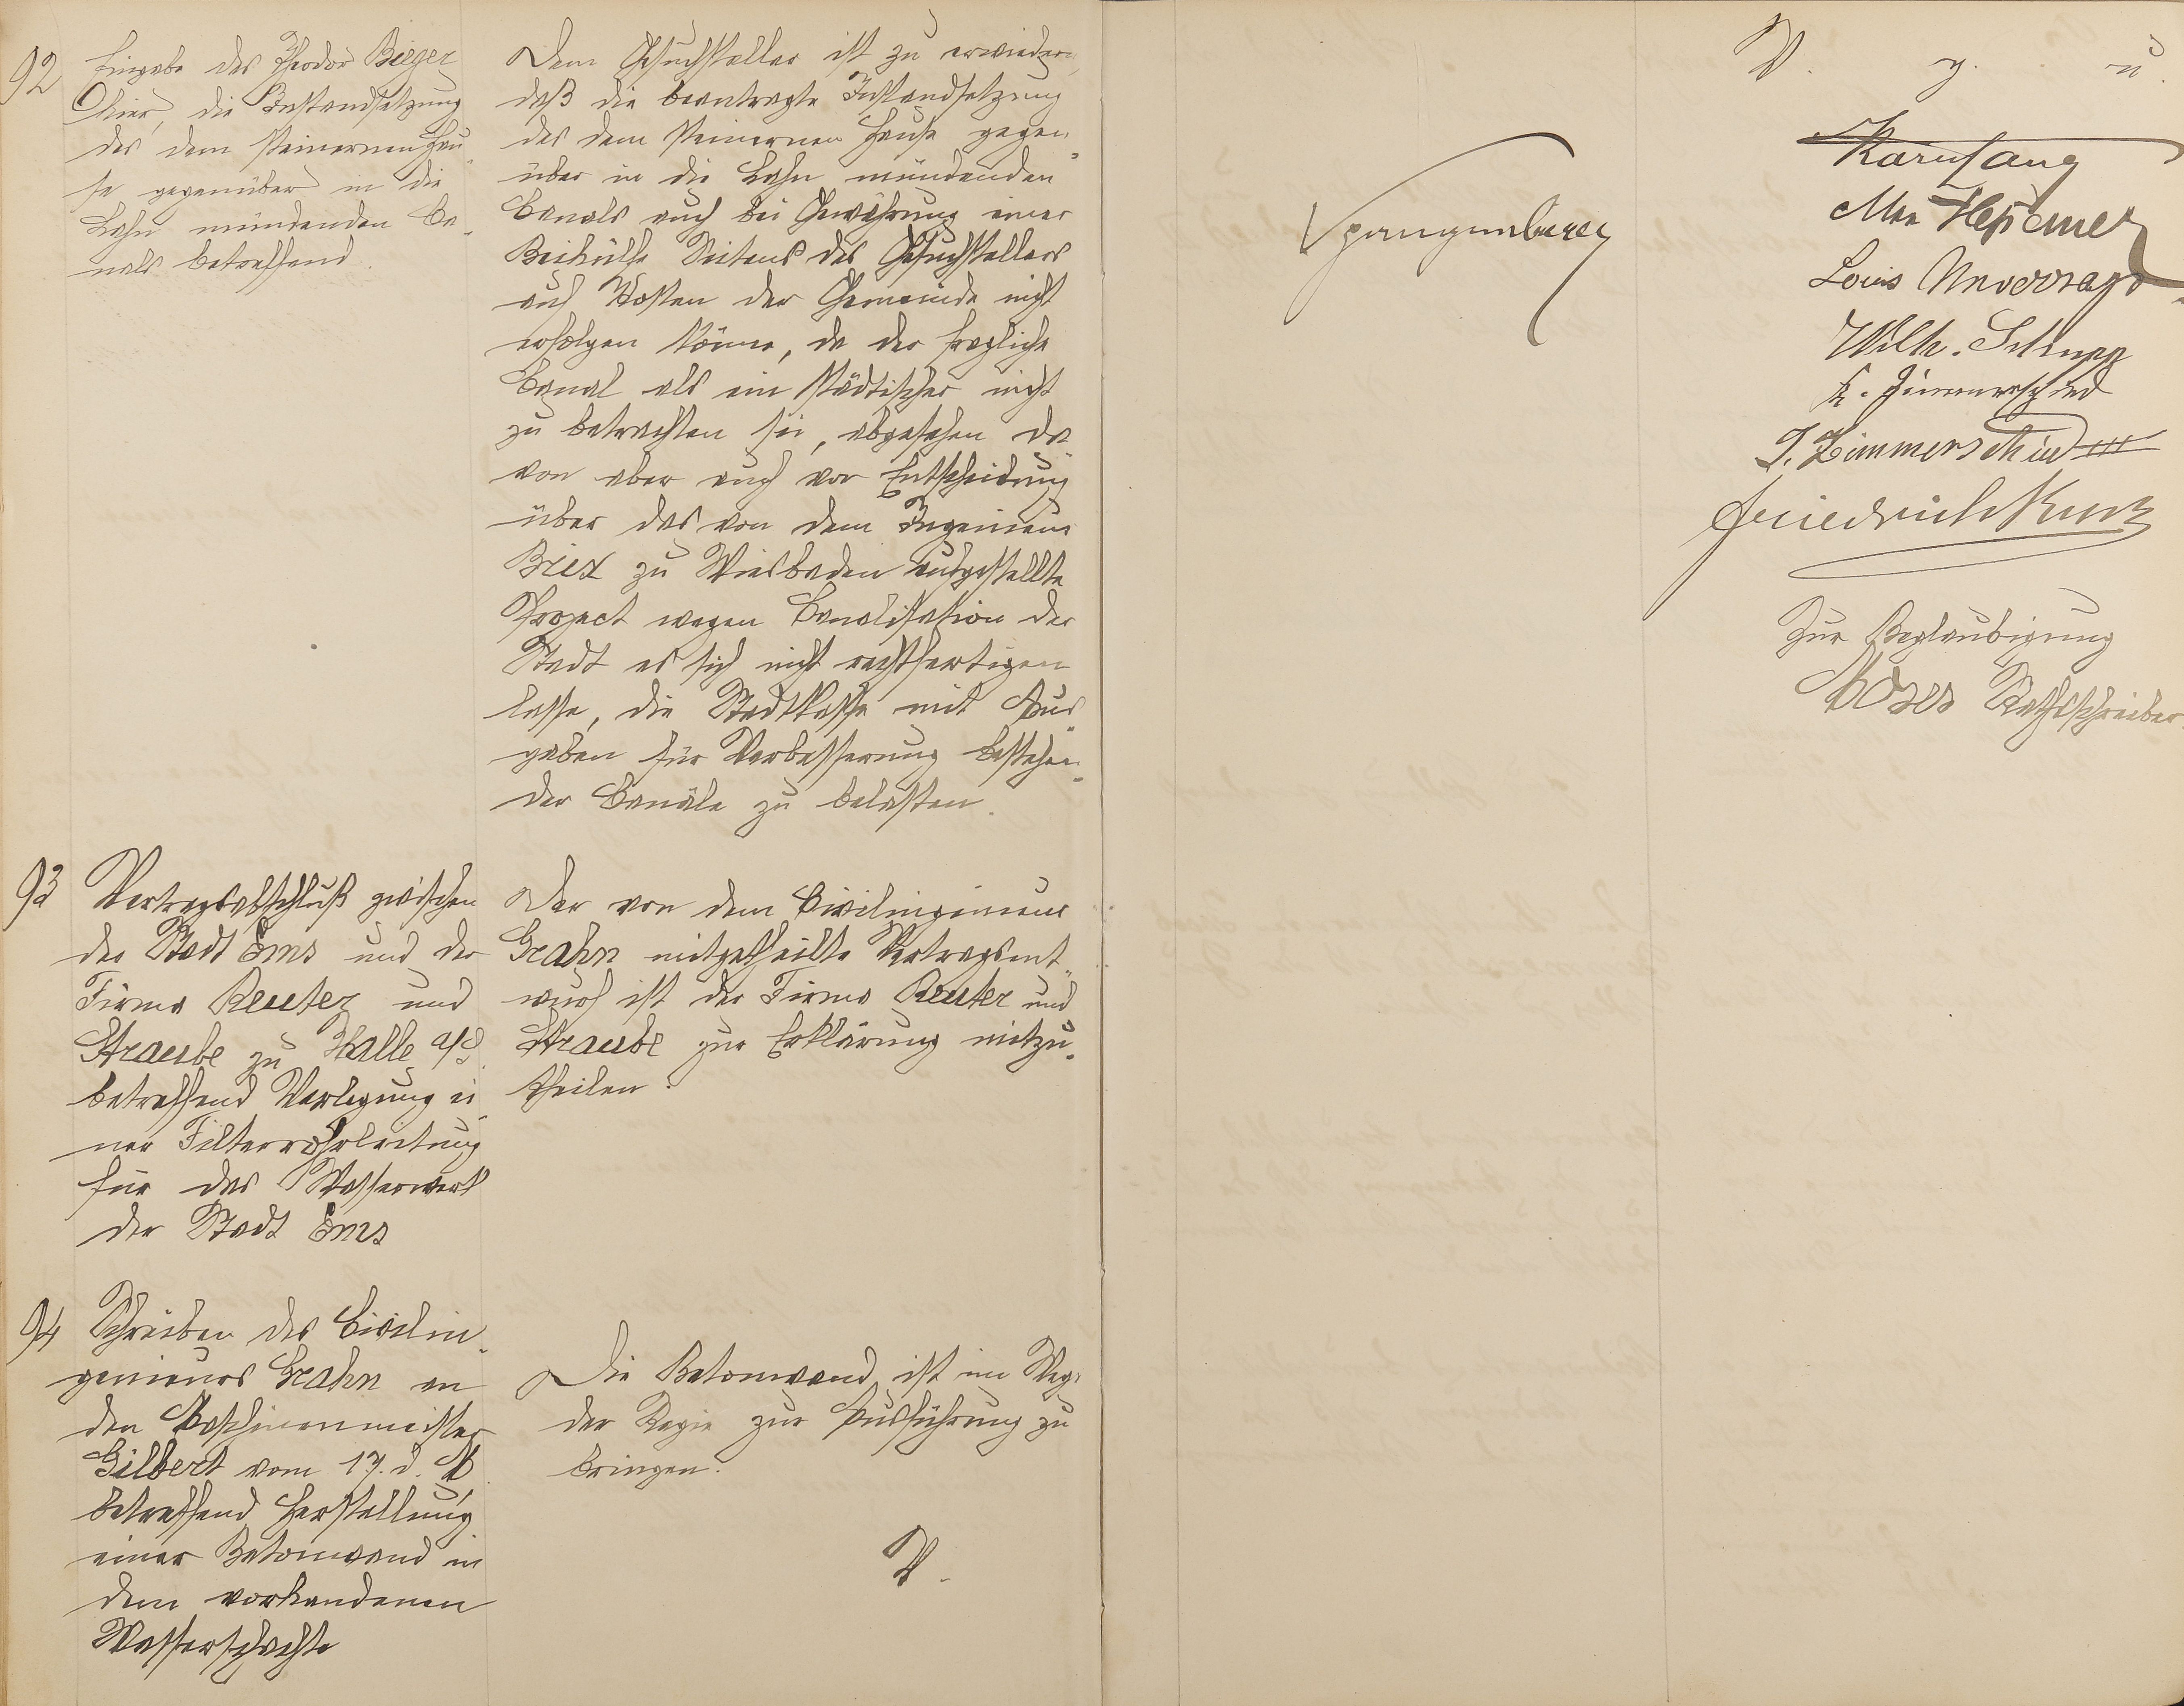 92
Eingabe des Theodor Bieger
hier, die Instandsetzung
des dem steinernen Hau-
se gegenüber in die
Lahn mündenden Ca-
nals betreffend.
Dem Gesuchsteller ist zu erwiedern,
daß die beantragte Instandsetzung
des dem steinernen Hause gegen-
über in die Lahn mündenden
Canals auch bei Gewährung einer
Beihülfe Seitens des Gesuchstellers
auf Kosten der Gemeinde nicht
erfolgen könne, da der fragliche
Canal als ein städtischer nicht
zu betrachten sei, abgesehen da-
von aber auch vor Entscheidung
über das von dem Ingenieur
Brix zu Wiesbaden aufgestellte
Project wegen Canalisation der
Stadt es sich nicht rechtfertigen
lasse, die Stadtkasse mit Aus-
gaben für Verbesserung bestehen-
der Canäle zu belasten.
93
Vertragsabschluß zwischen
der Stadt Ems und der
Firma Reuter und
Straube zu Halle a/S.
betreffend Verlegung ei-
ner Filterrohrleitung
für das Wasserwerk
der Stadt Ems
Der von dem Civilingenieur
Grahn mitgetheilte Vertragsent-
wurf ist der Firma Reuter und
Straube zur Erklärung mitzu-
theilen.
94
Schreiben des Civilin-
genieurs Grahn an
den Maschinenmeister
Gilbert vom 17. d. M.
betreffend Herstellung
einer Betonwand in
dem vorhandenen
Wasserschachte
Die Betonwand ist im Wege
der Regie zur Ausführung zu
bringen.
V.
Spangenberg
V. g. u.
Karnfang
Louis Unverzagt
Wilh. Schupp
K. Zimmerschied
J. Zimmerschied III
Friedrich Kurz
Zur Beglaubigung
Moses Rathschreiber.